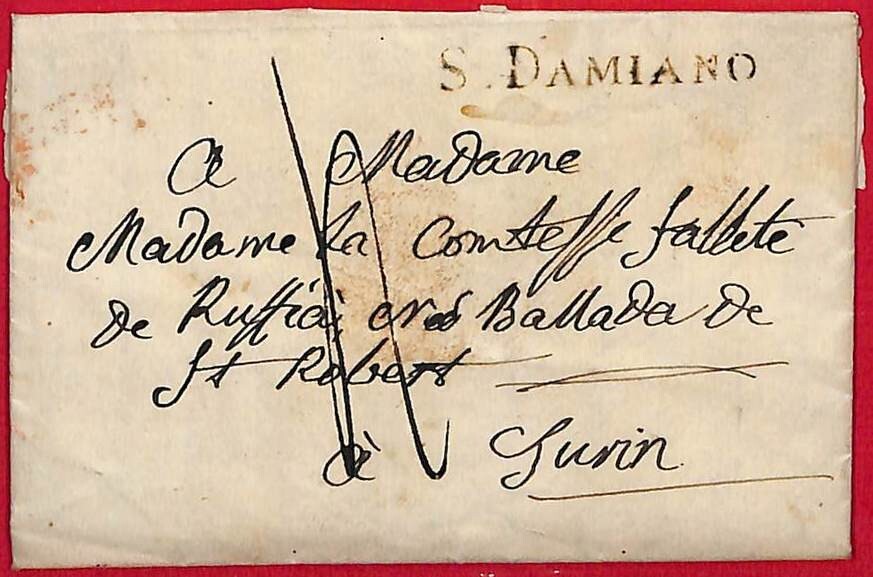 S. DAMIANO
A Madame
Madame la Comtesse fallete
de Ruffià, née Ballada de
St Robert
à Turin